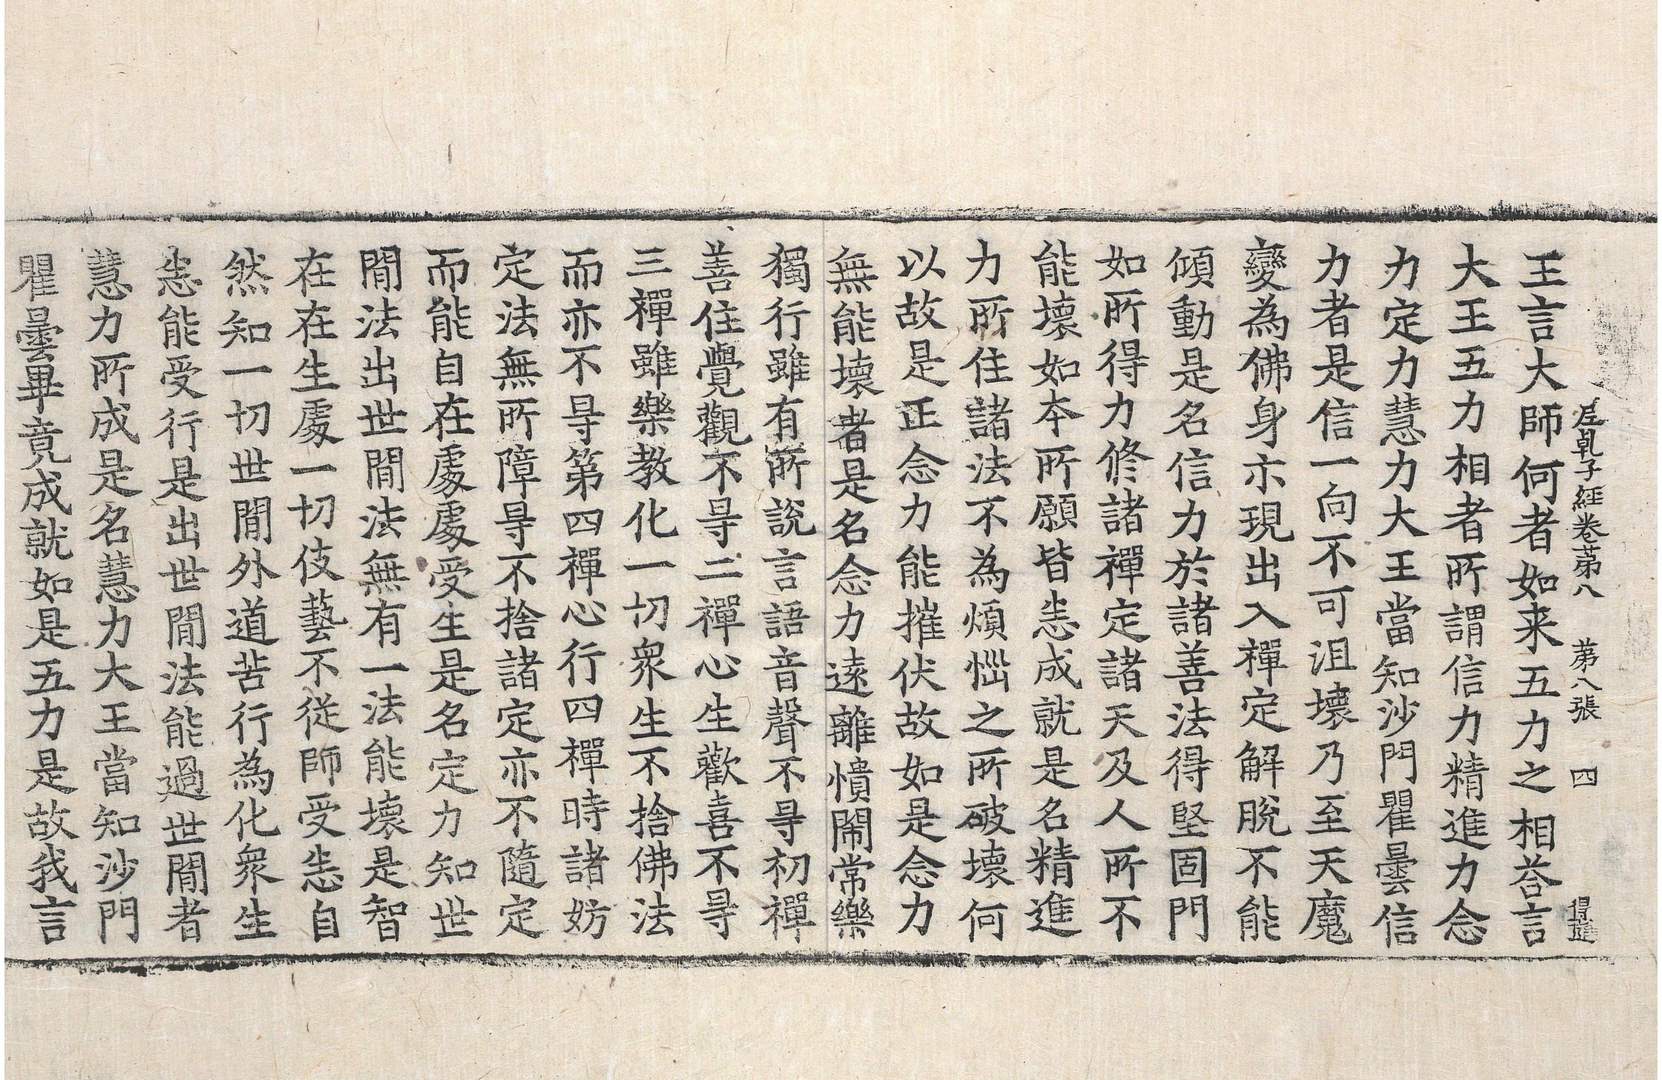 尼乹子經卷苐八　苐八張　四
王言大師何者如来五力之相荅言
大王五力相者所謂信力精進力念
力定力慧力大王當知沙門瞿曇信
力者是信一向不可沮壞乃至天魔
變為佛身示現出入禪定解脫不能
傾動是名信力於諸善法得堅固門
如所得力修諸禪定諸天及人所不
能壞如夲所願皆悉成就是名精進
力所住諸法不為煩惱之所破壞何
以故是正念力能摧伏故如是念力
無能壞者是名念力遠離憒閙常樂
獨行雖有所說言語音聲不㝵初禪
善住覺觀不㝵二禪心生歡喜不㝵
三禪雖樂教化一切衆生不捨佛法
而亦不㝵第四禪心行四禪時諸妨
定法無所障㝵不捨諸定亦不隨定
而能自在處處受生是名定力知世
閒法出世閒法無有一法能壞是智
在在生處一切伎藝不從師受悉自
然知一切世閒外道苦行為化衆生
悉能受行是出世閒法能過世閒者
慧力所成是名慧力大王當知沙門
瞿曇畢竟成就如是五力是故我言